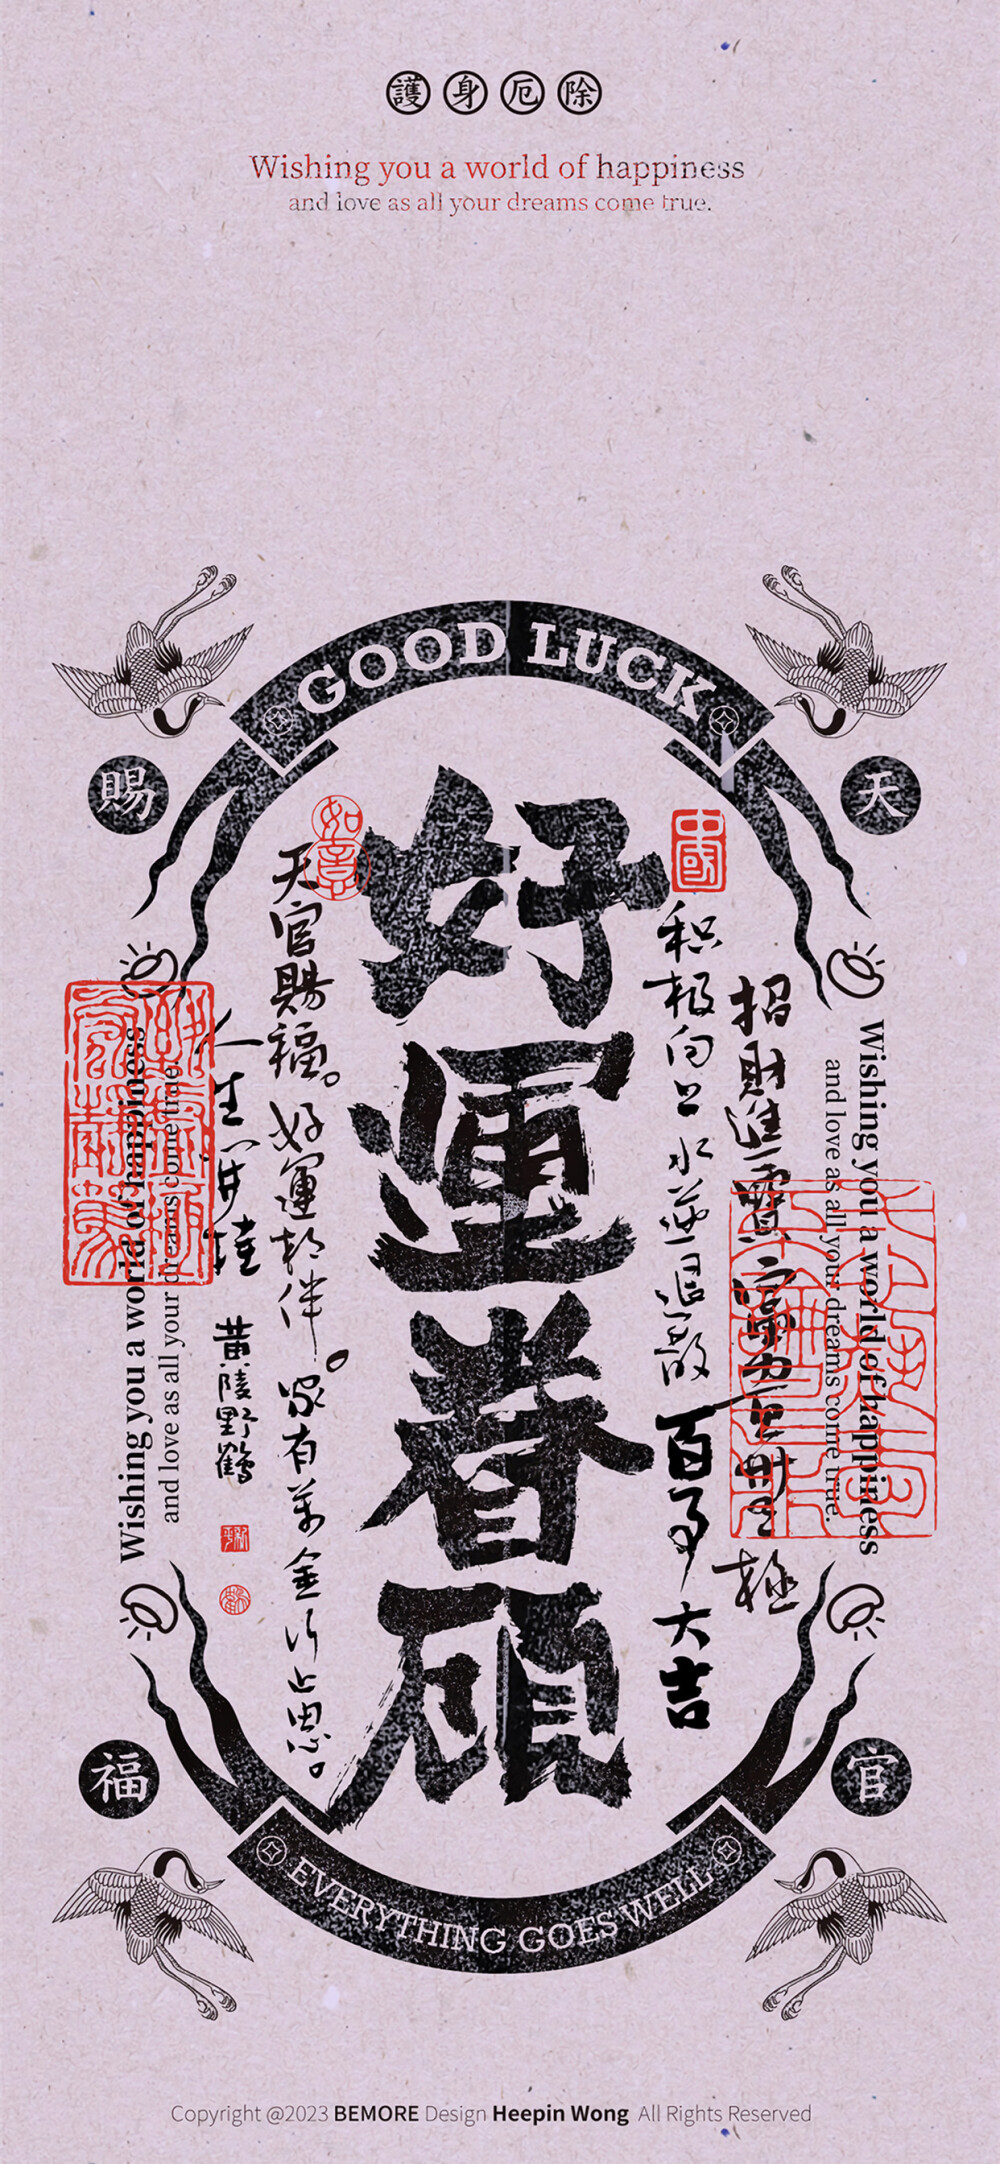 護身厄除
Wishing you a world of happiness
and love as all your dreams come true.
GOOD LUCK
賜
天
好運眷顧
如意
中國
招財進寶
極
积极向上水逆退散百事大吉
天官賜福。好運相伴。家有萬金
人生一步
黄陵野鶴
Wishing you a world of happiness
and love as all your dreams come true.
Wishing you a world of happiness
and love as all your dreams come true.
福
官
EVERYTHING GOES WELL
Copyright @2023 BEMORE Design Heepin Wong All Rights Reserved